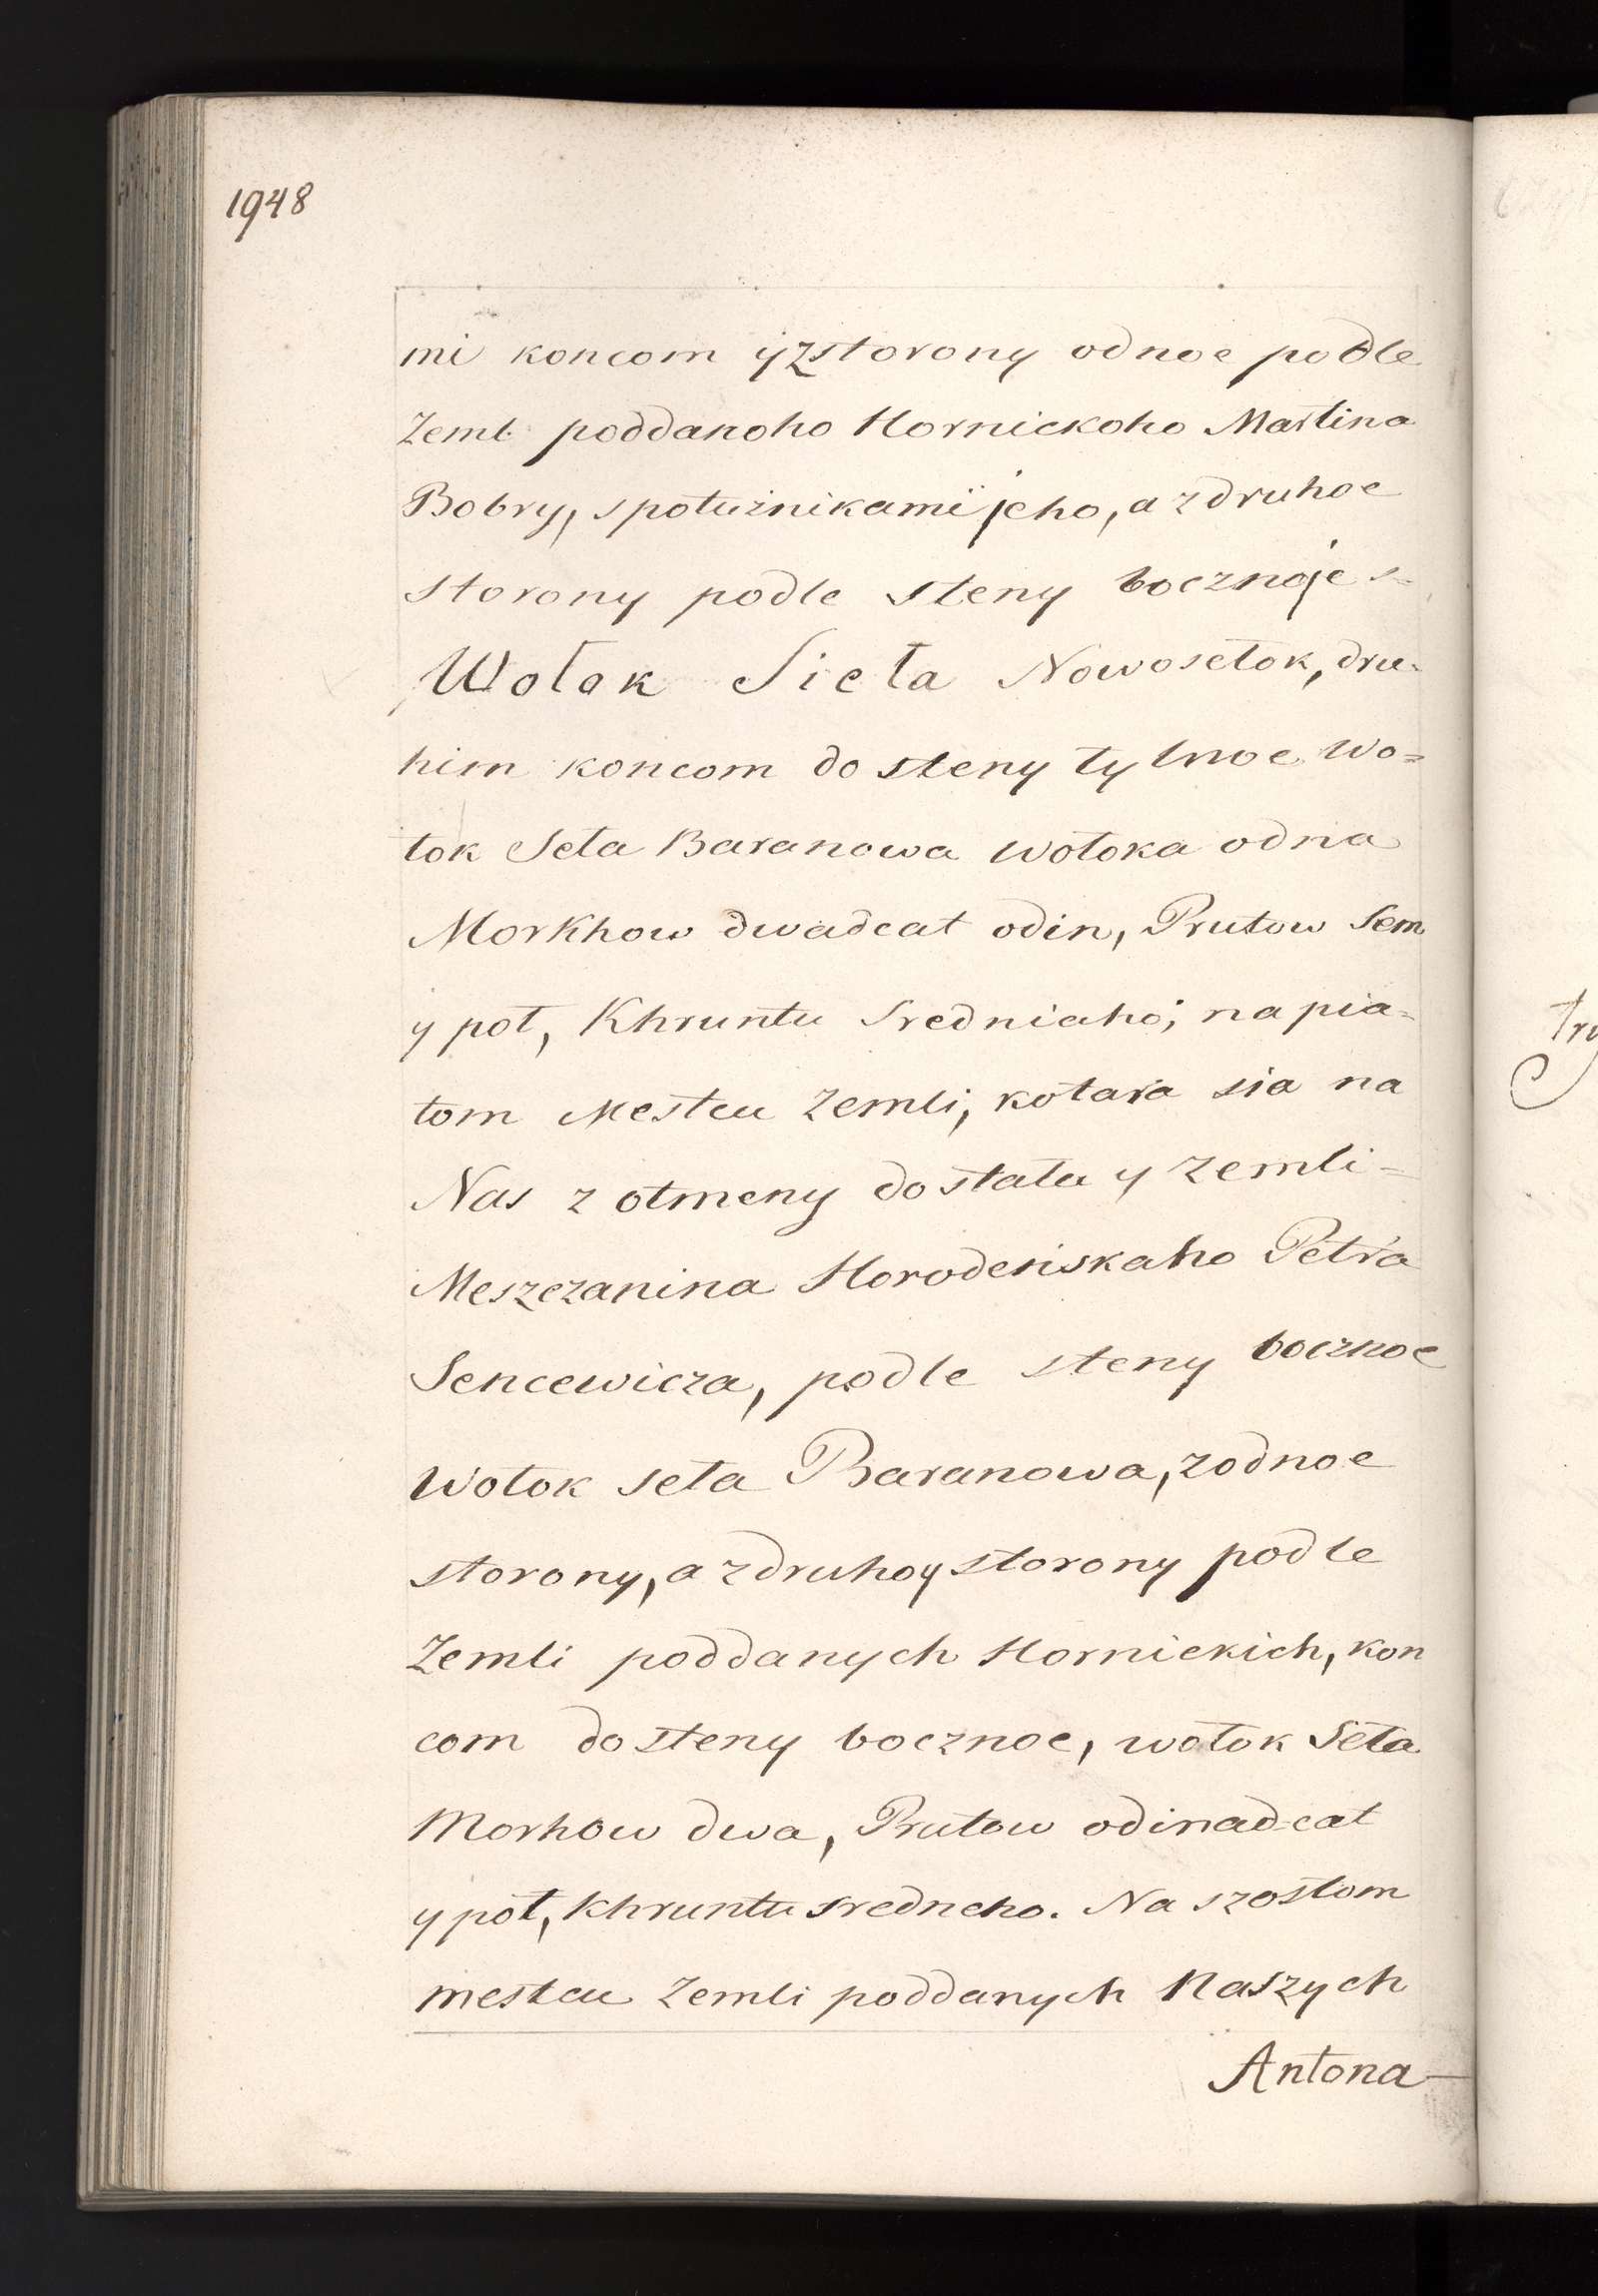 1948
mi koncom y zstorony odnoe podle
Zeml poddanoho Hornickoho Martina
Bobry, spotużnikami jeho, a z druhoe
storony podle steny bocznoje
Wołok Sieła Nowosełok, dru-
him koncom do steny tylnoe Wo=
łok Seła Baranowa wołoka odna
Morkhow dwadcat odin, Prutow Sem
y poł, Khruntu Sredniaho; na pia=
tom Mestcu Zemli, kotara sia na
Nas z otmeny dostała y zemli-
Meszczanina Horodenskaho Petra
Sencewicza, podle steny bocznoe
Wołok seła Baranowa, z odnoe
storony, a z druhoy storony podle
Zemli poddanych Hornickich, kon
com do steny bocznoe, wołok Seła
Morhow dwa, Prutow odinadcat
y poł, Khruntu sredneho. Na szostom
mestcu Zemli poddanych Naszych
Antona-
try